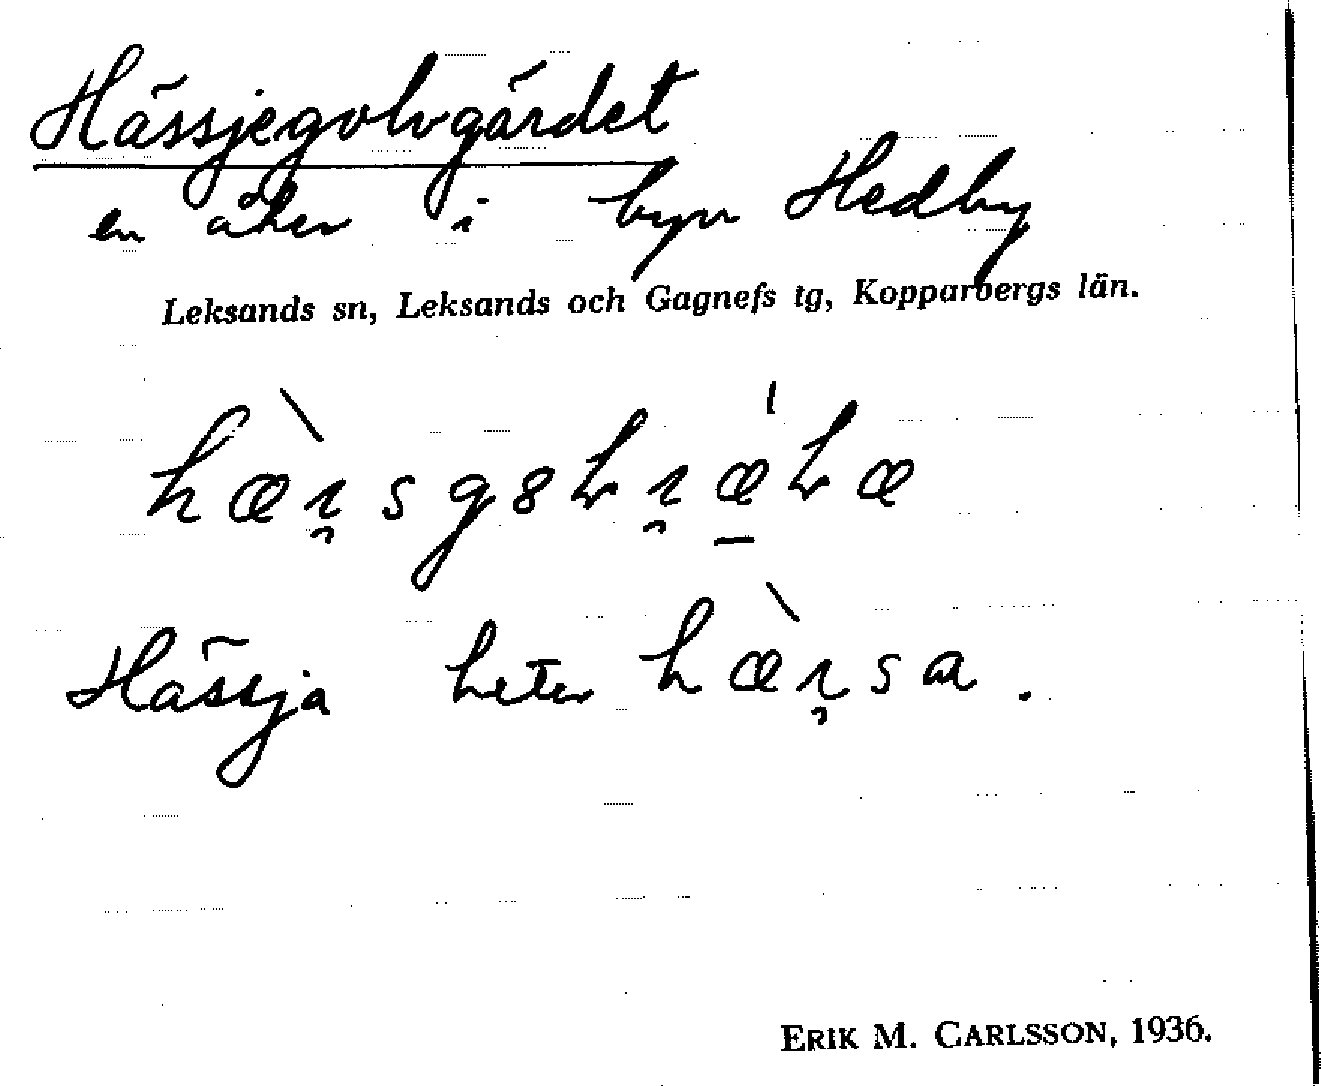 Hässjegolvgärdet
en åker i byn Hedby
Leksands sn, Leksands och Gagnefs tg, Kopparbergs län.
Hässja heter
ERIK M. CARLSSON, 1936.